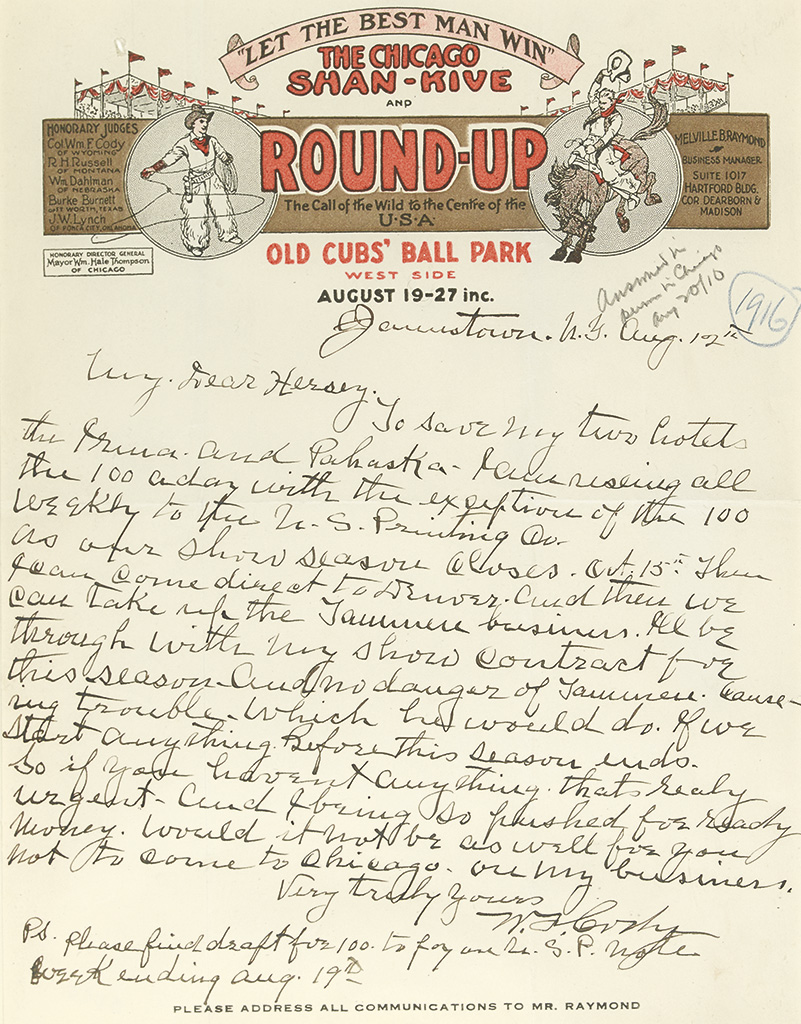 "LET THE BEST MAN WIN"
THE CHICAGO
SHAN-KIVE
AND
ROUND-UP
The Call of the Wild to the Centre of the
U·S·A·
HONORARY JUDGES
Col. Wm. F. Cody
OF WYOMING
R. H. Russell
OF MONTANA
Wm. Dahlman
OF NEBRASKA
Burke Burnett
FORT WORTH, TEXAS
J. W. Lynch
OF PONCA CITY, OKLAHOMA
HONORARY DIRECTOR GENERAL
Mayor Wm. Hale Thompson
OF CHICAGO
MELVILLE B. RAYMOND
BUSINESS MANAGER
SUITE 1017
HARTFORD BLDG.
COR. DEARBORN &
MADISON
OLD CUBS' BALL PARK
WEST SIDE
AUGUST 19-27 inc.
Answered in
person in Chicago
Aug 20/16
1916
Jamestown. N.Y. Aug. 12th
My. Dear Hersey.
To save my two hotels
the Irma. and Pahaska - I am useing all
the 100 a day with the exception of the 100
weekly to the U.S. Printing Co.
as our show season closes. Oct. 15th Then
I can come direct to Denver. and then we
can take up the Tammen business. I'll be
through with my show contract for
this season - And no danger of Tammen. cause-
ing trouble - Which he would do. If we
start anything. Before this season ends.
So if you havent anything. thats realy
urgent - And I being so pushed for ready
money. Would it not be as well for you
not to come to Chicago. on my business.
Very truly Yours
W. F. Cody
PS. Please find draft for 100. to pay on U.S.P. note
Week ending Aug. 19th
PLEASE ADDRESS ALL COMMUNICATIONS TO MR. RAYMOND